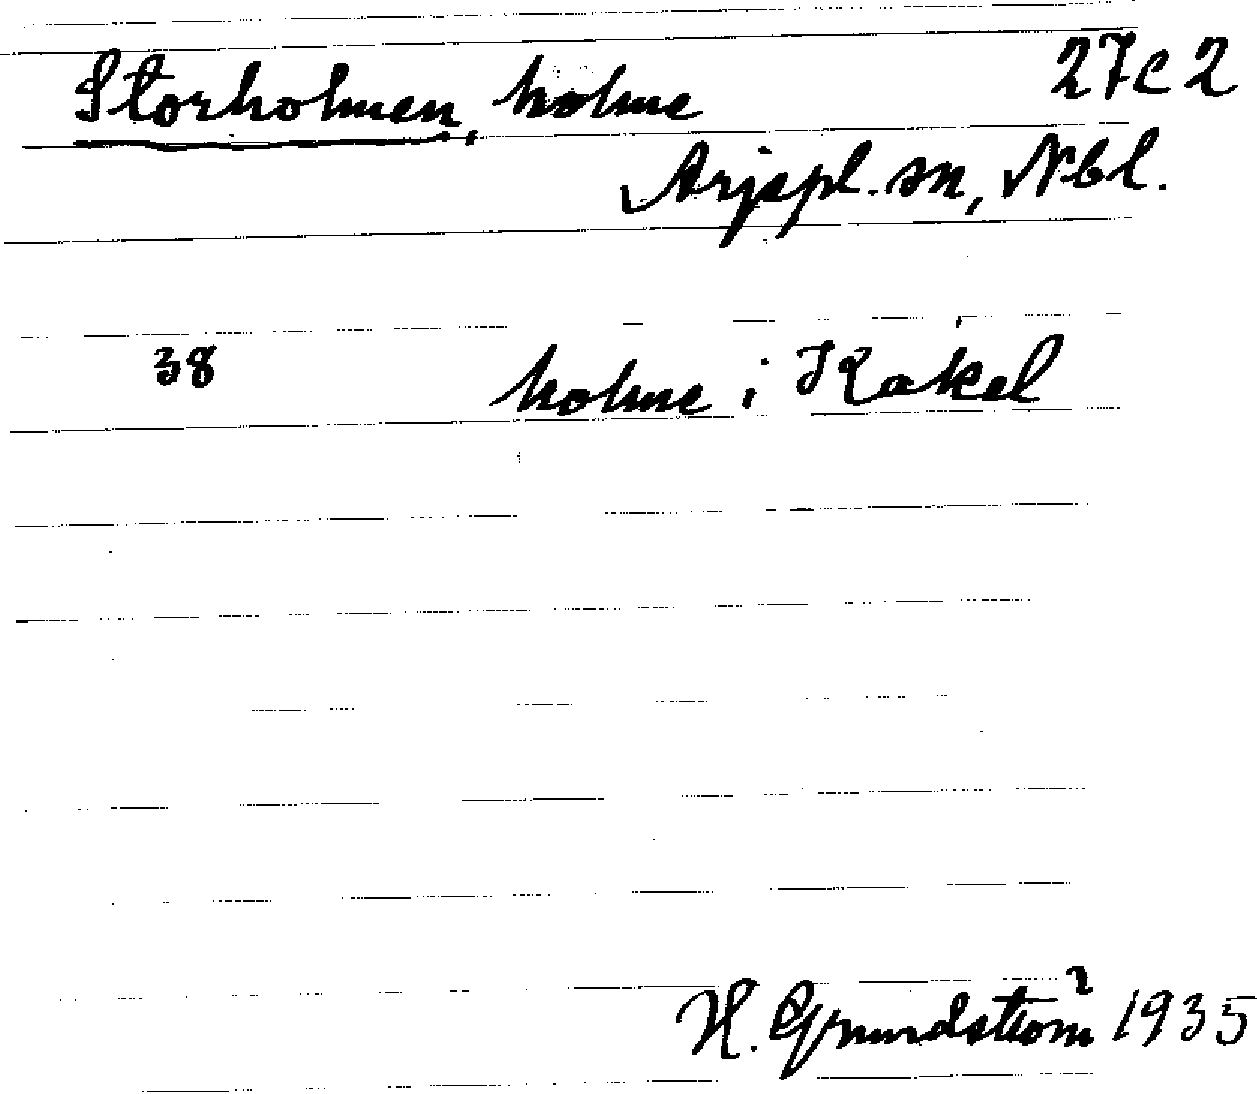 Storholmen, holme 27c2
Arjepl. sn, Nbl.
38 holme i Kakel
H. Grundström 1935